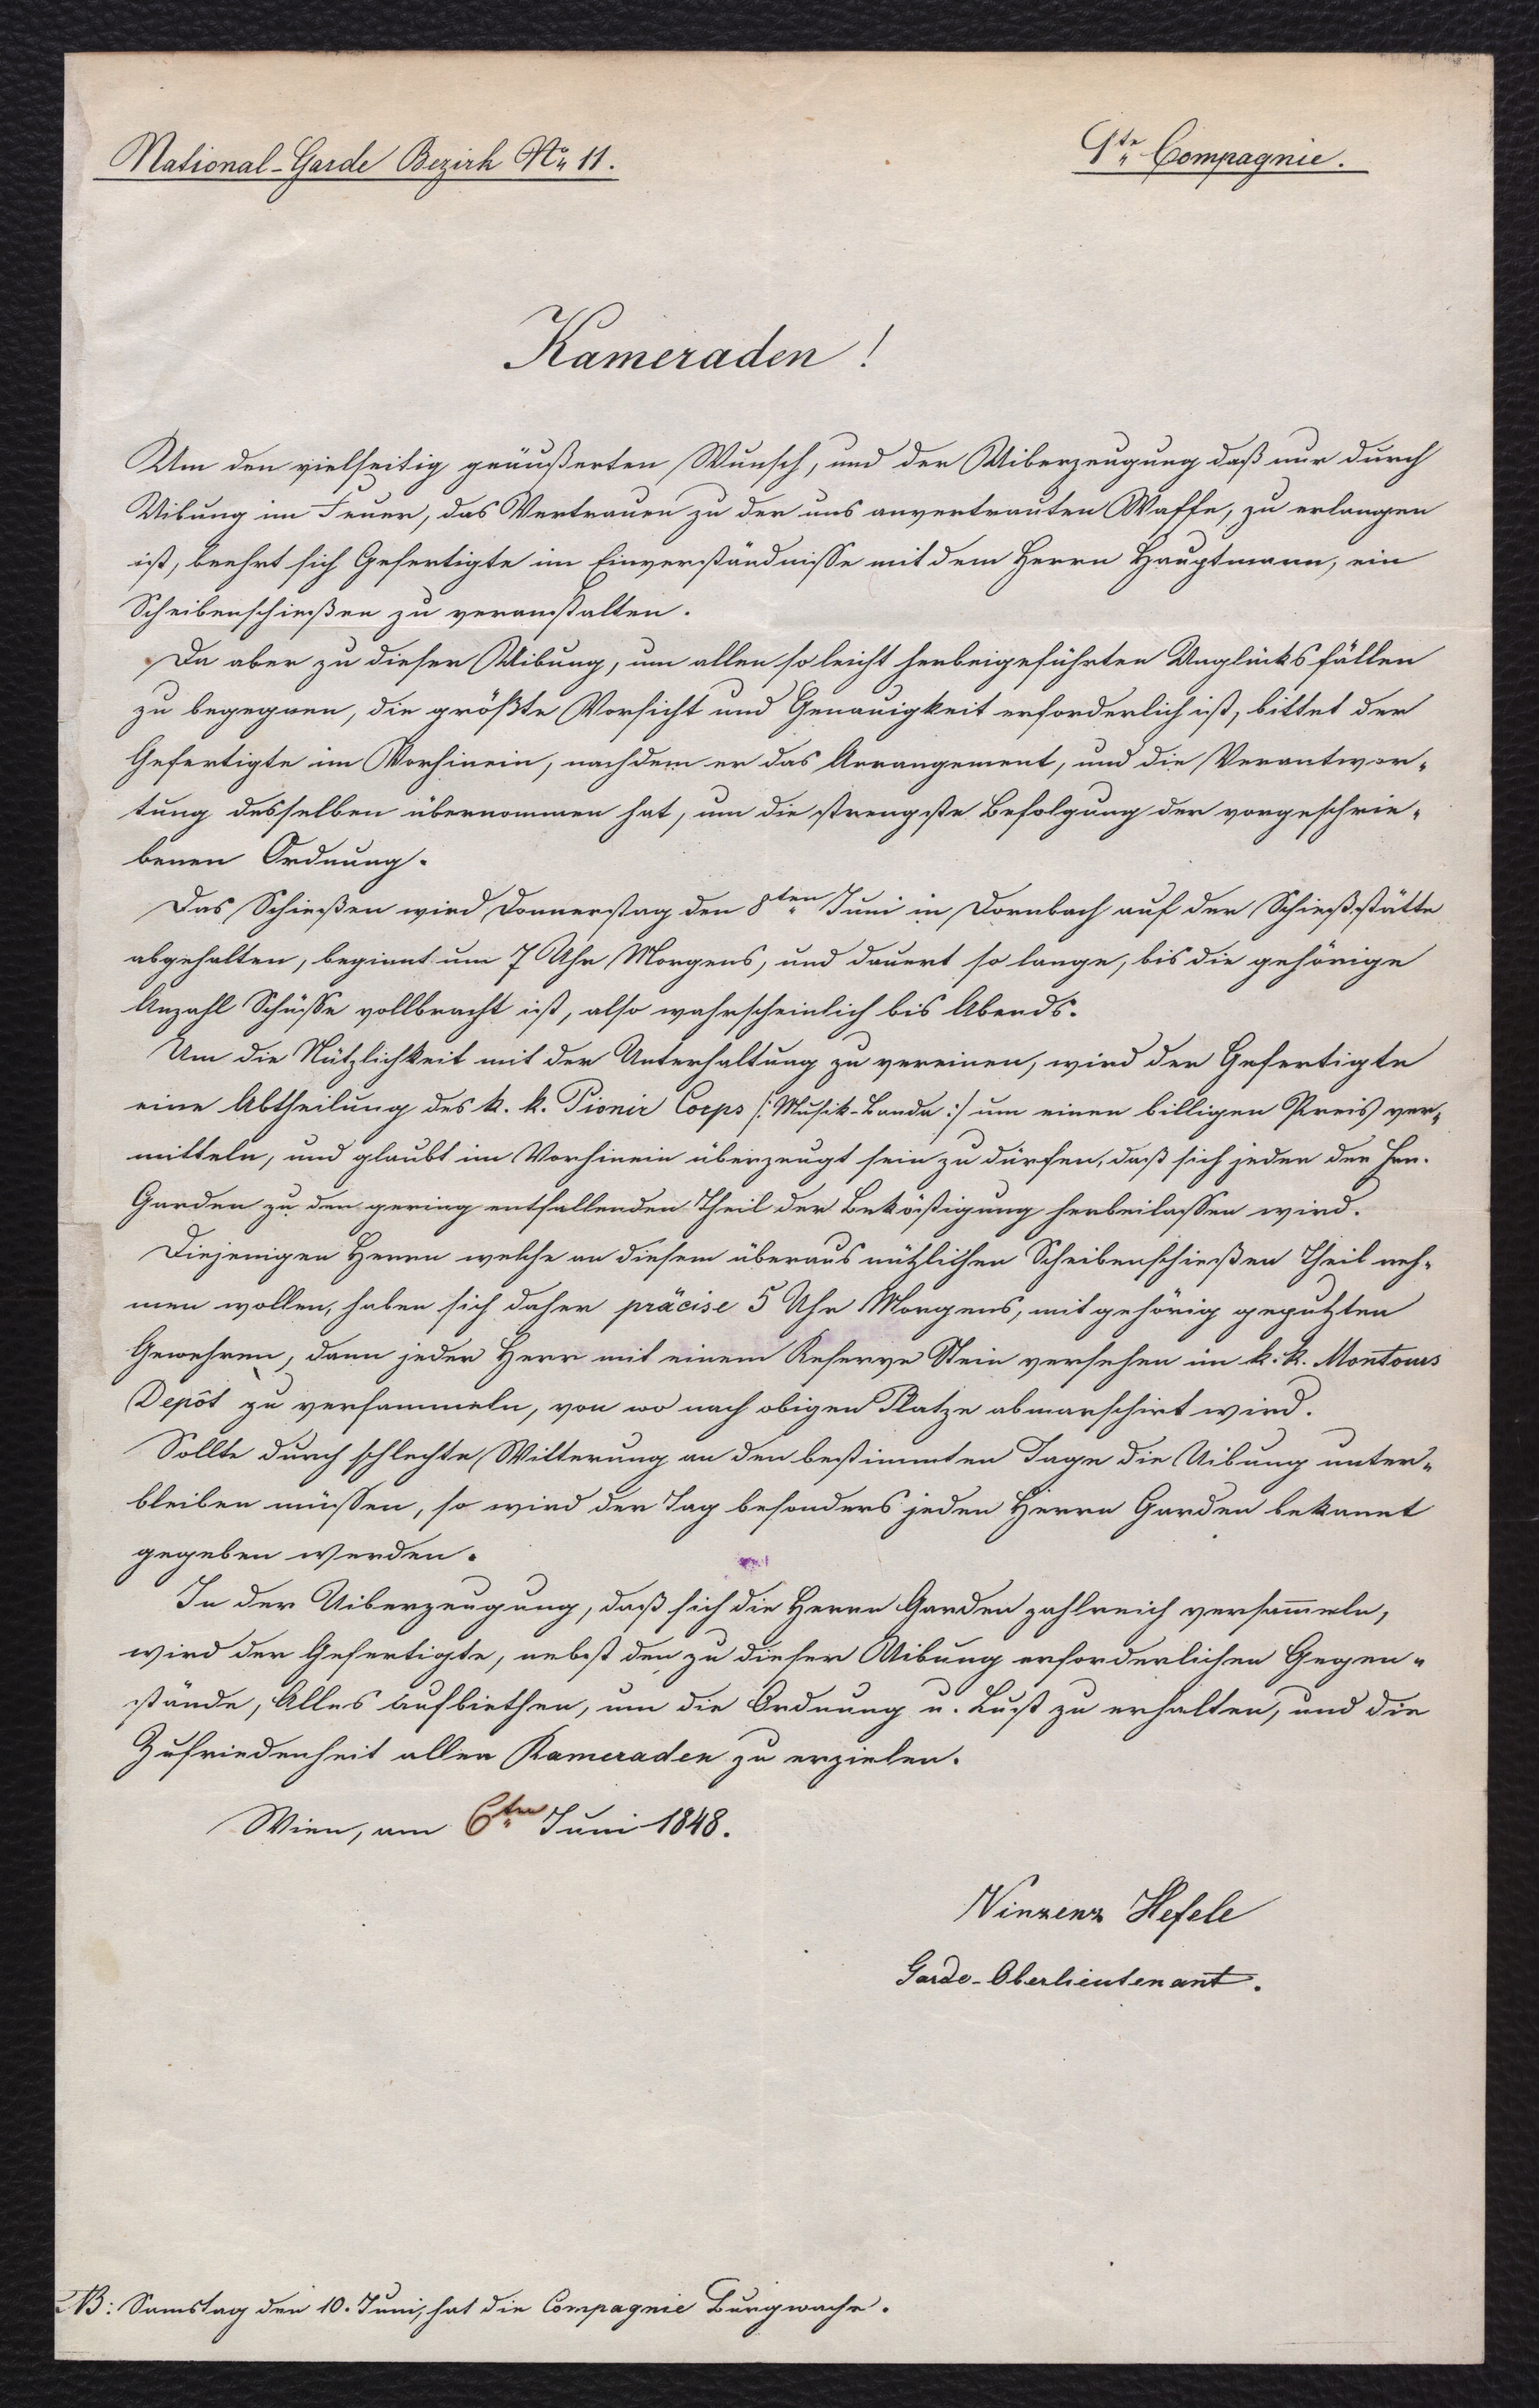 National-Garde Bezirk No 11.
1te Compagnie.
Kameraden!
Um den vielseitig geäußerten Wunsch, und der Uiberzeugung daß nur durch
Uibung im Feuer, das Vertrauen zu der uns anvertrauten Waffe, zu erlangen
ist, beehrt sich Gefertigte im Einverständnisse mit dem Herrn Hauptmann, ein
Scheibenschießen zu veranstalten.
Da aber zu dieser Uibung, um allen so leicht herbeigeführten Unglücksfällen
zu begegnen, die größte Vorsicht und Genauigkeit erforderlich ist, bittet der
Gefertigte im Vorhinein, nachdem er das Arrangement, und die Verantwor-
tung desselben übernommen hat, um die strengste Befolgung der vorgeschrie-
benen Ordnung.
Das Schießen wird Donnerstag den 8ten Juni in Dornbach auf der Schießstätte
abgehalten, beginnt um 7 Uhr Morgens, und dauert so lange, bis die gehörige
Anzahl Schüsse vollbracht ist, also wahrscheinlich bis Abends.
Um die Nützlichkeit mit der Unterhaltung zu vereinen, wird der Gefertigte
eine Abtheilung des k. k. Pionir Corps /: Musik-Banda :/ um einen billigen Preis ver-
mitteln, und glaubt im Vorhinein überzeugt sein zu dürfen, daß sich jeder der Hrn.
Garden zu den gering entfallenden Theil der Beköstigung herbeilassen wird.
Diejenigen Herrn welche an diesem überaus nützlichen Scheibenschießen Theil neh-
men wollen, haben sich daher präcise 5 Uhr Morgens, mit gehörig geputzten
Gewehren, dann jeder Herr mit einem Reserve Stein versehen im k. k. Montours
Depôt zu versammeln, von wo nach obigen Platze abmarschirt wird.
Sollte durch schlechte Witterung an den bestimmten Tage die Uibung unter-
bleiben müssen, so wird der Tag besonders jeden Herrn Garden bekannt
gegeben werden.
In der Uiberzeugung, daß sich die Herrn Garden zahlreich versam̄eln,
wird der Gefertigte, nebst den zu dieser Uibung erforderlichen Gegen-
stände, Alles aufbiethen, um die Ordnung u. Lust zu erhalten, und die
Zufriedenheit aller Kameraden zu erzielen.
Wien, am 6ten Juni 1848.
Vinzenz Hefele
Garde-Oberlieutenant.
NB: Samstag den 10. Juni, hat die Compagnie Burgwache.